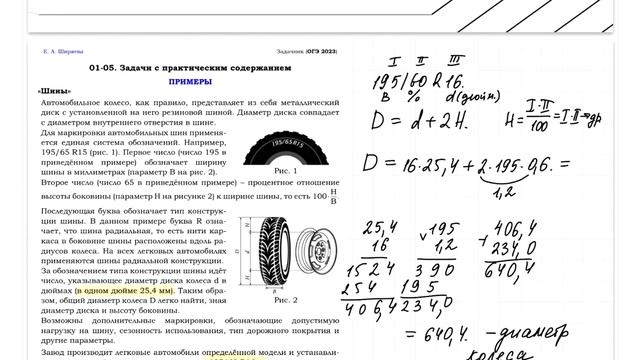 Е. А. Ширяева
Задачник (ОГЭ 2023)
01-05. Задачи с практическим содержанием
ПРИМЕРЫ
«Шины»
Автомобильное колесо, как правило, представляет из себя металлический
диск с установленной на него резиновой шиной. Диаметр диска совпадает
с диаметром внутреннего отверстия в шине.
Для маркировки автомобильных шин применя-
ется единая система обозначений. Например,
195/65 R15 (рис. 1). Первое число (число 195 в
приведённом примере) обозначает ширину
шины в миллиметрах (параметр B на рис. 2).
195/65R15
Рис. 1
Второе число (число 65 в приведённом примере) – процентное отношение
высоты боковины (параметр H на рисунке 2) к ширине шины, то есть 100·H/B.
Последующая буква обозначает тип конструк-
ции шины. В данном примере буква R озна-
чает, что шина радиальная, то есть нити кар-
каса в боковине шины расположены вдоль ра-
диусов колеса. На всех легковых автомобилях
применяются шины радиальной конструкции.
За обозначением типа конструкции шины идёт
число, указывающее диаметр диска колеса d в
дюймах (в одном дюйме 25,4 мм). Таким обра-
зом, общий диаметр колеса D легко найти, зная
диаметр диска и высоту боковины.
H
D
d
H
B
Рис. 2
Возможны дополнительные маркировки, обозначающие допустимую
нагрузку на шину, сезонность использования, тип дорожного покрытия и
другие параметры.
Завод производит легковые автомобили определённой модели и устанавли-
I II III
195/60 R 16.
B % d(дюйм.)
D = d + 2H. H = I·II/100 = I·II → др
D = 16·25,4 + 2·195·0,6. =
1,2
25,4
16
1524
254
406,4
× 195
1,2
390
195
234,0
+ 406,4
234,0
640,4
= 640,4. – диаметр
колеса